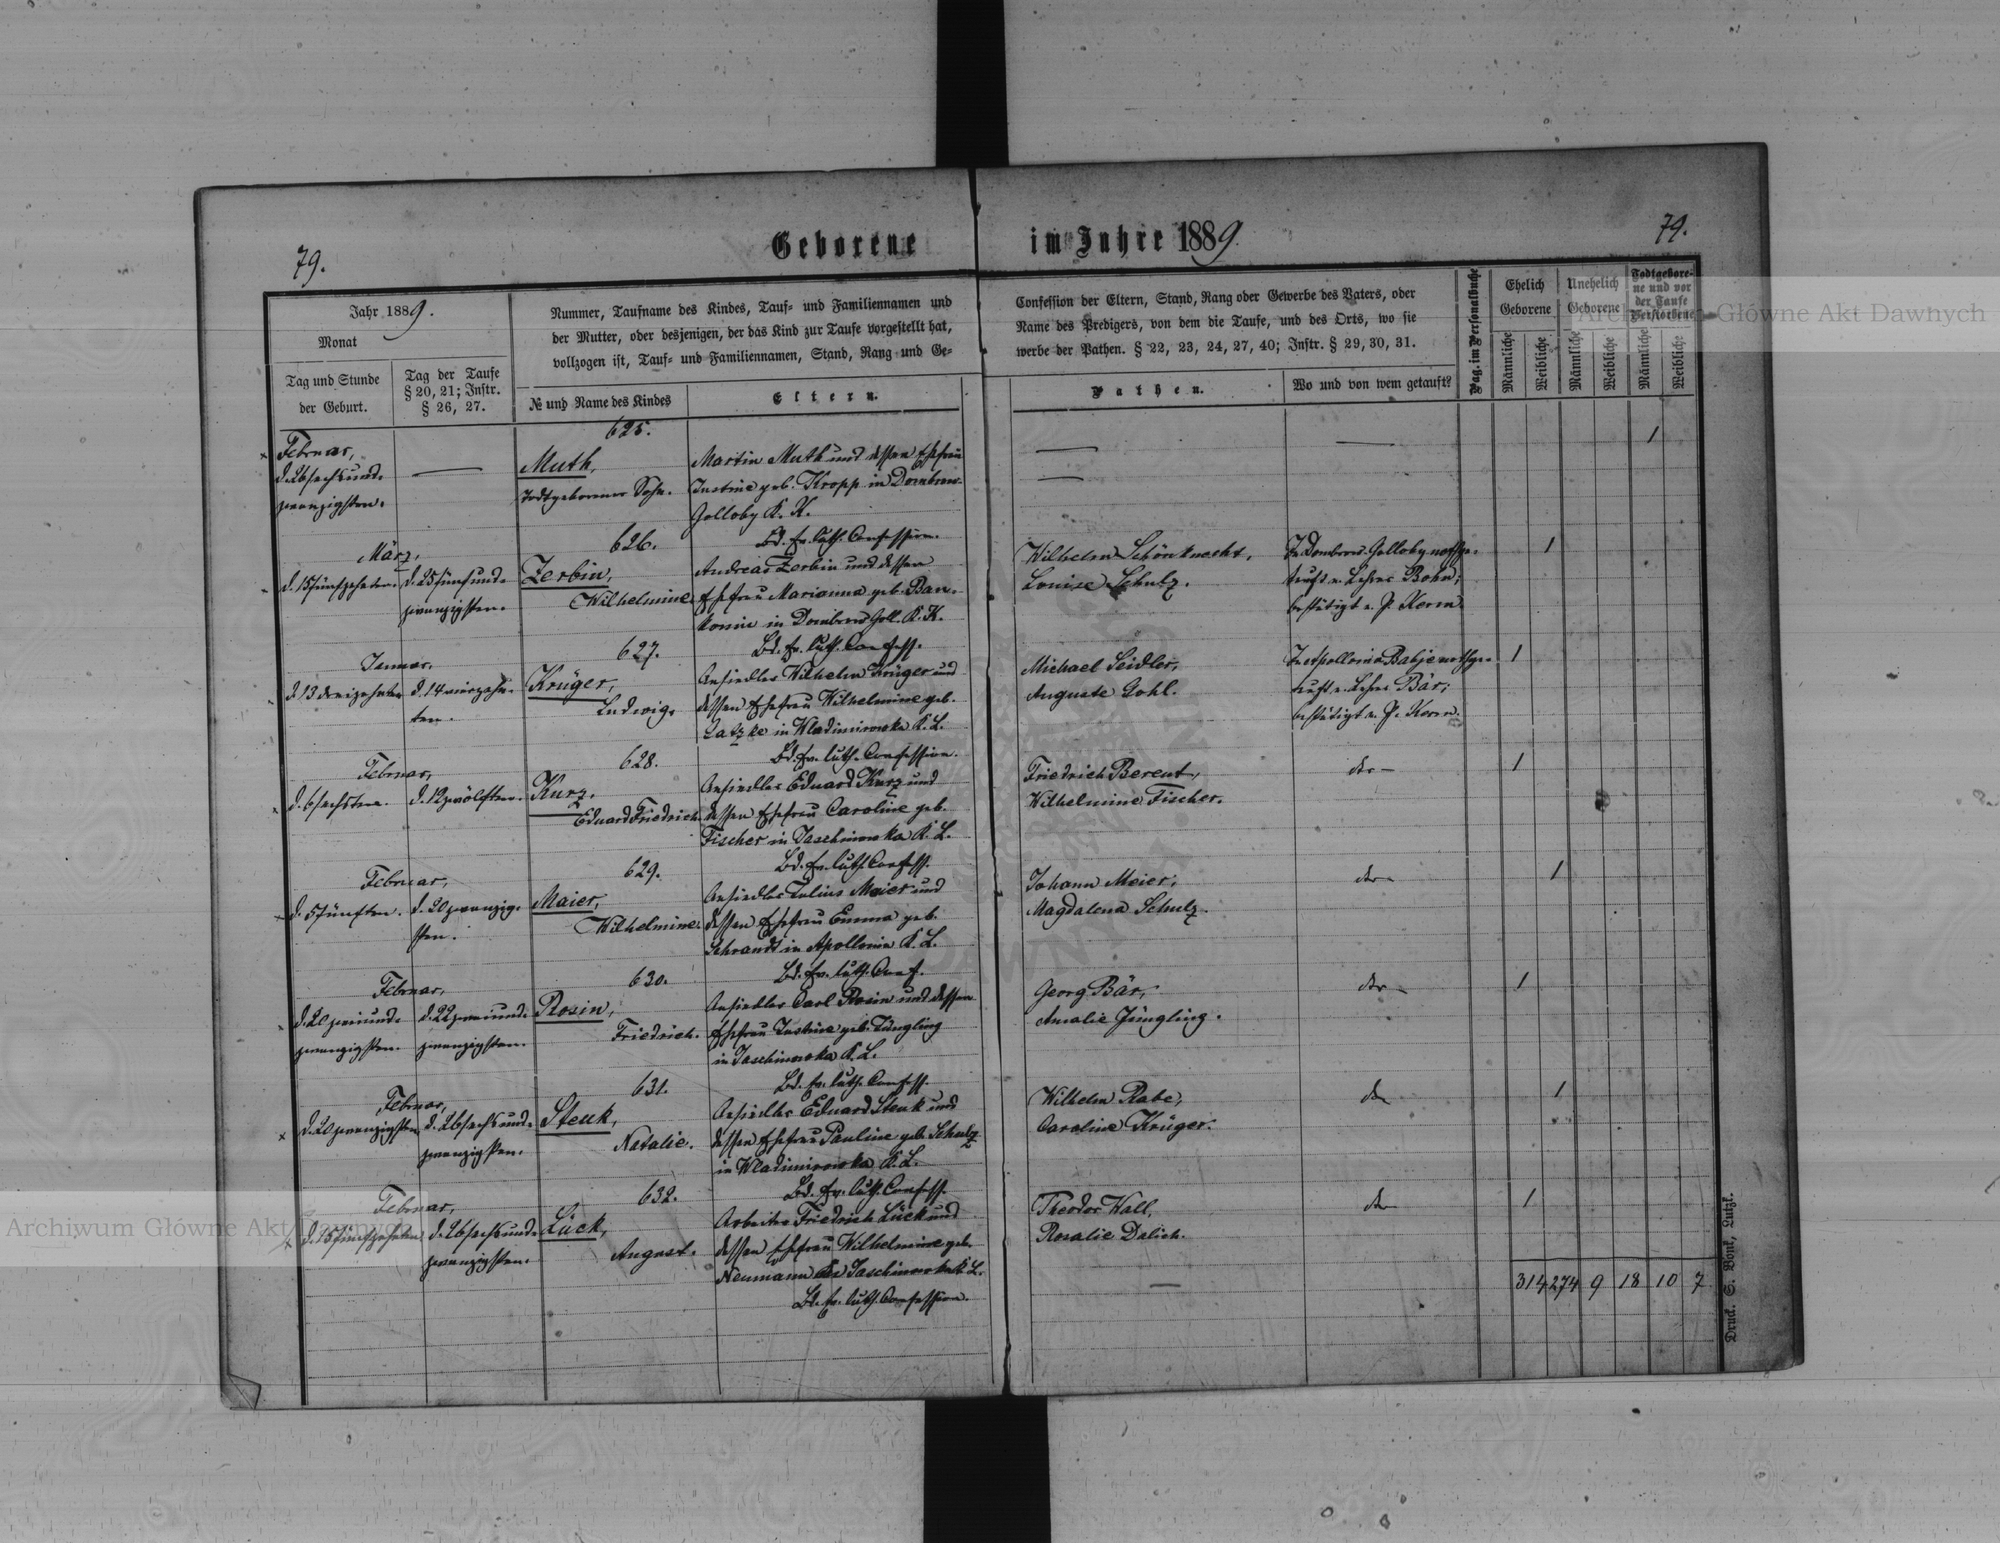 79.
Geborene
im Jahre 1889.
79.
Jahr 1889.
Monat
Tag und Stunde
der Geburt.
Tag der Taufe
§ 20, 21; Instr.
§ 26, 27.
Nummer, Taufname des Kindes, Tauf- und Familiennamen und
der Mutter, oder desjenigen, der das Kind zur Taufe vorgestellt hat,
vollzogen ist, Tauf- und Familiennamen, Stand, Rang und Ge-
№ und Name des Kindes
Eltern.
Confession der Eltern, Stand, Rang oder Gewerbe des Vaters, oder
Name des Predigers, von dem die Taufe, und des Orts, wo sie
werbe der Pathen. § 22, 23, 24, 27, 40; Instr. § 29, 30, 31.
Pathen.
Wo und von wem getauft?
Pag. im Personalbuche
Ehelich
Geborene
Unehelich
Geborene
Todtgebore-
ne und vor
der Taufe
Verstorbene
Männliche
Weibliche
Männliche
Weibliche
Männliche
Weibliche
625.
Februar,
d. 26 sechsund-
zwanzigsten.
Muth,
todtgeborener Sohn.
Martin Muth und dessen Ehefrau
Justine geb. Kropp in Dombrow-
Golloby K. K.
Bd. Ev. luth. Confession.
1
626.
März,
d. 15 fünfzehnten.
d. 25 fünfund-
zwanzigsten.
Zerbin,
Wilhelmine.
Andreas Zerbin und dessen
Ehefrau Marianna geb. Ban-
konin in Dombrow Goll. K. K.
Bd. Ev. luth. Confess.
Wilhelm Schönknecht,
Louise Schulz.
In Dombrow-Golloby nothge-
tauft v. Lehrer Bohn;
bestätigt v. P. Kerm.
1
627.
Januar,
d. 13 dreizehnten
d. 14 vierzehn-
ten.
Krüger,
Ludwig.
Ansiedler Wilhelm Krüger und
dessen Ehefrau Wilhelmine geb.
Latzke in Wladimirowka K. L.
Bd. Ev. luth. Confession.
Michael Seidler,
Auguste Gohl.
In Apollonia Babje nothge-
tauft v. Lehrer Bär;
bestätigt v. P. Kerm.
1
628.
Februar,
d. 6 sechsten.
d. 12 zwölften.
Kurz,
Eduard Friedrich.
Ansiedler Eduard Kurz und
dessen Ehefrau Caroline geb.
Fischer in Jaschinowka K. L.
Bd. Ev. luth. Confess.
Friedrich Berent,
Wilhelmine Fischer.
der-
1
629.
Februar,
d. 5 fünften.
d. 20 zwanzig-
sten.
Maier,
Wilhelmine.
Ansiedler Julius Maier und
dessen Ehefrau Emma geb.
Schrandt in Apollonia K. L.
Bd. Ev. luth. Conf.
Johann Meier,
Magdalena Schulz.
der-
1
630.
Februar,
d. 20 zweiund-
zwanzigsten.
d. 22 zweiund-
zwanzigsten.
Rosin,
Friedrich.
Ansiedler Carl Rosin und dessen
Ehefrau Justine geb. Jüngling
in Jaschinowka K. L.
Bd. Ev. luth. Confess.
Georg Bär,
Amalie Jüngling.
der-
1
631.
Februar,
d. 20 zwanzigsten
d. 26 sechsund-
zwanzigsten.
Steuk,
Natalie.
Ansiedler Eduard Steuk und
dessen Ehefrau Pauline geb. Schulz
in Wladimirowka K. L.
Bd. Ev. luth. Confess.
Wilhelm Rabe,
Caroline Krüger.
der
1
632.
Februar,
d. 15 fünfzehnten
d. 26 sechsund-
zwanzigsten.
Lück,
August.
Arbeiter Friedrich Lück und
dessen Ehefrau Wilhelmine geb.
Neumann in Jaschinowka K. L.
Bd. Ev. luth. Confession.
Theodor Hall,
Rosalie Dalich.
der
1
314 274 9 18 10 7
Druck. S. Bonk, Lutzk.
Archiwum Główne Akt Dawnych
Archiwum Główne Akt Dawnych